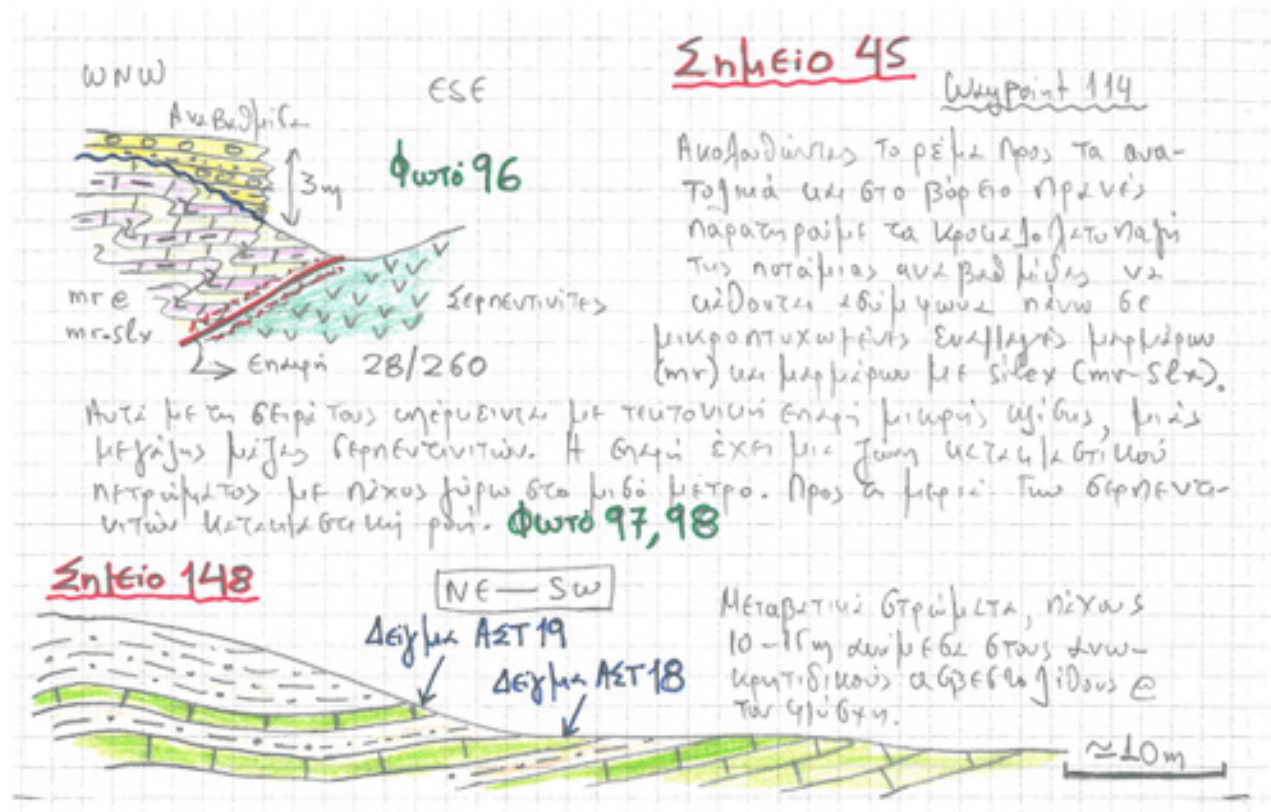 Σημείο 45
Waypoint 114
WNW
ESE
Αναβαθμίδα
3m
Φωτό 96
mr @
mr-slx
Σερπεντινίτες
Επαφή 28/260
Ακολουθώντας το ρέμα προς τα ανα-
τολικά και στο βόρειο πρανές
παρατηρούμε τα κροκαλολατυποπαγή
της ποτάμιας αναβαθμίδας να
κάθονται ασύμφωνα πάνω σε
μικροπτυχωμένες εναλλαγές μαρμάρων
(mr) και μαρμάρων με silex (mr-slx).
Αυτά με τη σειρά τους υπέρκεινται με τεκτονική επαφή μικρής κλίσης, μιάς
μεγάλης μάζας σερπεντινιτών. Η επαφή έχει μια ζώνη κατακλαστικού
πετρώματος με πάχος γύρω στο μισό μέτρο. Προς τη μεριά των σερπεντι-
νιτών κατακλαστική ροή. Φωτό 97, 98
Σημείο 148
NE — SW
Δείγμα ΑΣΤ 19
Δείγμα ΑΣΤ 18
Μεταβατικά στρώματα, πάχους
10-15m ανάμεσα στους ανω-
κρητιδικούς ασβεστολίθους @
τον φλύσχη.
≈10m